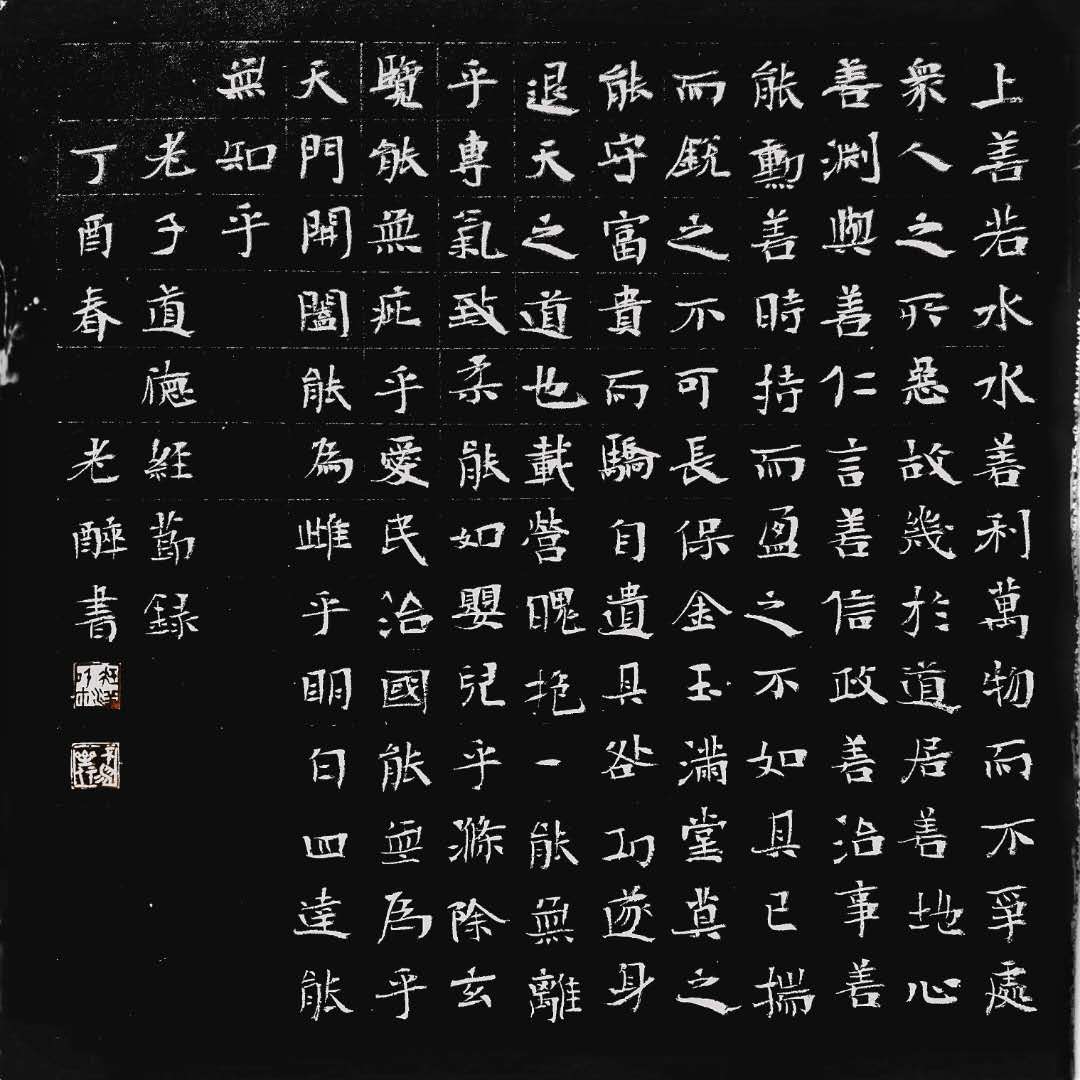 上善若水水善利萬物而不爭處
衆人之所惡故幾於道居善地心
善淵與善仁言善信政善治事善
能勲善時持而盈之不如其已揣
而銳之不可長保金玉滿堂莫之
能守富貴而驕自遺其咎功遂身
退天之道也載營魄抱一能無離
乎專氣致柔能如嬰兒乎滌除玄
覽能無疵乎愛民治國能無為乎
天門開闔能為雌乎明白四達能
無知乎
老子道德經節録
丁酉春 老醉書